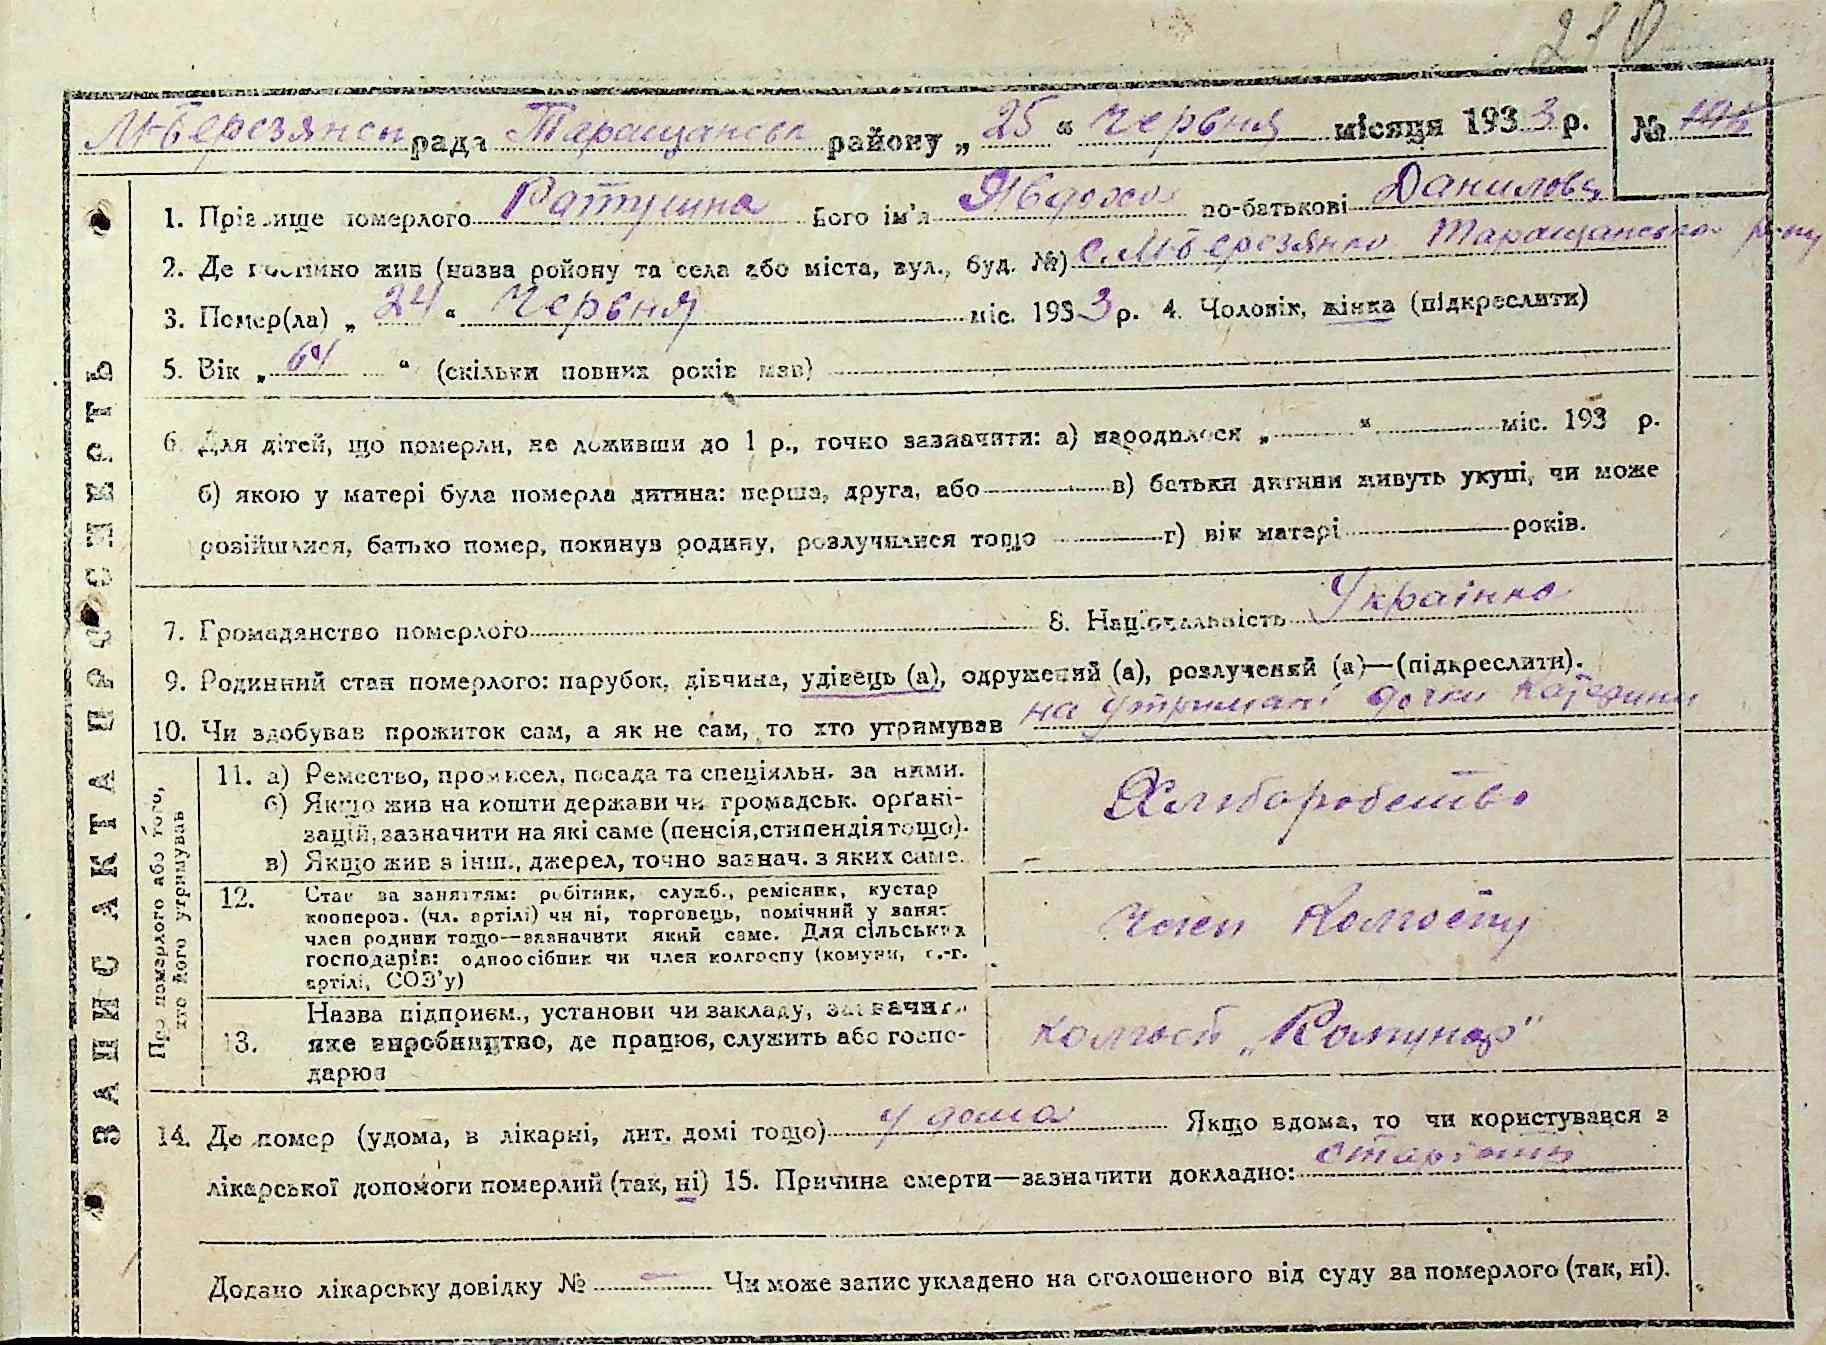 210
М-Березянськ рада Таращанськ району „ 25 “ Червня місяця 1933 р. №
1. Прізвище померлого Ратушна Його ім'я Явдоха по-батькові Данилова
2. Де постійно жив (назва району та села або міста, вул., буд. №) с. М-Березянка Таращанського р-ну
3. Помер(ла) „ 24 “ Червня міс. 1933 р. 4. Чоловік, жінка (підкреслити)
5. Вік „ 64 “ (скільки повних років мав)
6. Для дітей, що померли, не доживши до 1 р., точно зазначити: а) народилося „ “ міс. 193 р.
б) якою у матері була померла дитина: перша, друга, або в) батьки дитини живуть укупі, чи може
розійшлися, батько помер, покинув родину, розлучилися тощо г) вік матері років.
7. Громадянство померлого 8. Національність Українка
9. Родинний стан померлого: парубок, дівчина, удівець (а), одружений (а), розлучений (а)—(підкреслити).
10. Чи здобував прожиток сам, а як не сам, то хто утримував на утримані дочки
ЗАПИС АКТА ПРО СМЕРТЬ
Про померлого або того, хто його утримував
11. а) Ремество, промисел, посада та спеціяльн. за ними.
б) Якщо жив на кошти держави чи громадськ. орґані-
зацій, зазначити на які саме (пенсія, стипендія тощо).
в) Якщо жив з інш., джерел, точно зазнач. з яких саме.
Хліборобство
12. Стан за заняттям: робітник, служб., ремісник, кустар
коопероз. (чл. артілі) чи ні, торговець, помічний у занят.
член родини тощо—зазначити який саме. Для сільських
господарів: одноосібник чи член колгоспу (комуни, с.-г.
артілі, СОЗ'у)
Член колгоспу
13. Назва підприєм., установи чи закладу, зазначити
яке виробництво, де працює, служить або госпо-
дарює
колгосп „Комунар"
14. Де помер (удома, в лікарні, дит. домі тощо) у дома Якщо вдома, то чи користувався з
лікарської допомоги померлий (так, ні) 15. Причина смерти—зазначити докладно: старість
Додано лікарську довідку № — Чи може запис укладено на оголошеного від суду за померлого (так, ні).